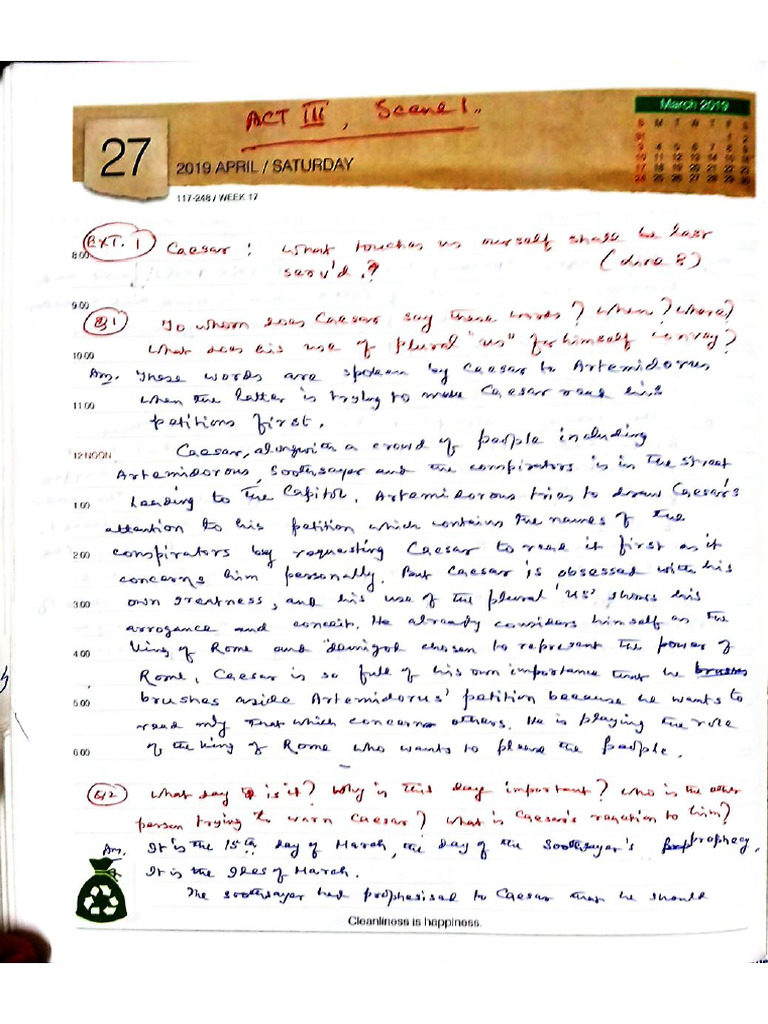 ACT III, Scene 1.
March 2019
S M T W T F S
31 1 2
3 4 5 6 7 8 9
10 11 12 13 14 15 16
17 18 19 20 21 22 23
24 25 26 27 28 29 30
27
2019 APRIL / SATURDAY
117-248 / WEEK 17
EXT. 1 Caesar : What touches us ourself shall be last
8.00
serv'd.? (line 8)
9.00
Q1 To whom does Caesar say these words? When? Where?
What does his use of plural "us" for himself convey?
10.00
Ans. These words are spoken by Caesar to Artemidorus
when the latter is trying to make Caesar read his
11.00
petitions first.
Caesar, alongwith a crowd of people including
12 NOON
Artemidorous, Soothsayer and the conspirators is in the street
leading to the Capitol. Artemidorous tries to draw Caesar's
1.00
attention to his petition which contains the names of the
conspirators by requesting Caesar to read it first as it
2.00
concerns him personally. But Caesar is obsessed with his
own greatness, and his use of the plural 'us' shows his
3.00
arrogance and conceit. He already considers himself as the
king of Rome and demigod chosen to represent the power of
4.00
Rome, Caesar is so full of his own importance that he brushes
brushes aside Artemidorus' petition because he wants to
5.00
read only that which concerns others. He is playing the role
of the king of Rome who wants to please the people.
6.00
Q2 What day is it? Why is this day important? Who is the other
person trying to warn Caesar? What is Caesar's reaction to him?
Ans. It is the 15th day of March, the day of the Soothsayer's prophecy.
It is the Ides of March.
The soothsayer had prophesised to Caesar that he should
Cleanliness is happiness.